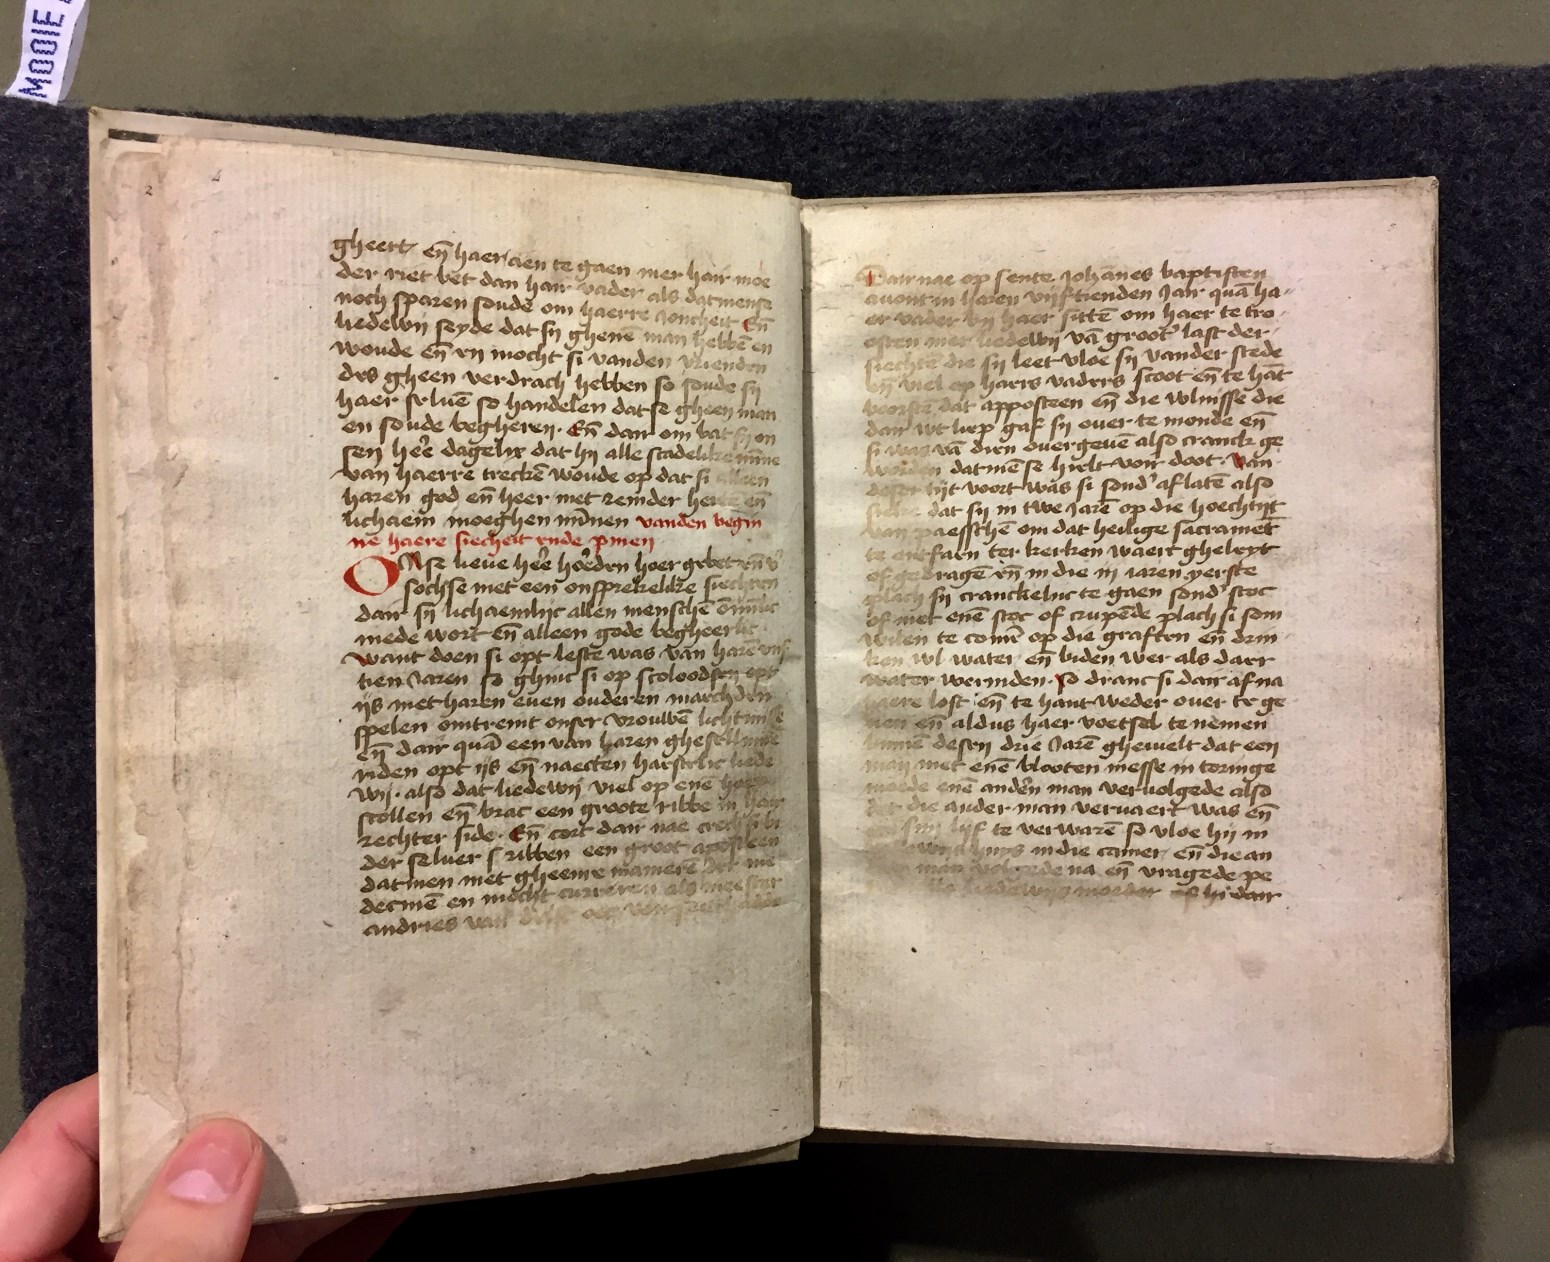 MOOIE
2
gheert en̄ haer aen te gaen mer hair moe
der riet bet dan hair vader als datmense
noch sparen soudē om haerre Joncheit En̄
liedewij seyde dat sij ghenē man hebbē en
woude en̄ en mocht si vanden vrienden
des gheen verdrach hebben so soude sij
haer seluē so handelen datse gheen man
en soude begheren. En̄ dair om bat sij on
sen hēe dagelix dat hij alle stadelike mīne
van haerre treckē woude op dat si alleen
haren god en̄ heer met reinder herten en̄
lichaem moeghen mīnen vanden begin
nē haere siecheit ende pinen
Onse lieue hēe hoerden hoer gebet en̄ v
sochse met een onsprekelike siechten
dair sij lichaemlijc allen menschē onmīc
mede wort en̄ alleen gode begheerlic
want doen si opt leste was van harē vijf
tien Jaren so ghinc si op scoloodsen opt
ijs met haren euen ouderen maechden
spelen omtrent onser vrouwē lichtmisse
en̄ dair quā een van haren ghesellinnē
riden opt ijs en̄ naecten haestelic liede
wij. also dat liedewij viel op enē hoop
scollen en̄ brac een groote ribbe in hair
rechter side. En̄ cort dair nae creech si bi
der seluer ribben een groot aposteen
datmen met gheenre manieren
decmē en mocht curreren als meester
andries van delf
Dair nae op sente Johānes baptisten
auont in haren vijftienden Jair quā ha
er vader bij haer sittē om haer te tro
esten met liedewij vā groot' last der
siechtē die sij leet vloe sij vander stede
en̄ viel op haers vaders scoot en̄ te hāt
borsten dat apposteen en̄ die vulnisse die
dan wt liep gaf sij ouer te monde en̄
si was vā dien ouergeuē also cranck ge
worden datmēse hielt voir doot. Van
deser tijt voort was si sond' aflatē also
siecke dat sij in twe Jarē op die hoechtijt
van paesschē om dat heilige sacramēt
te entfaen ter kerken waert gheleyt
of gedragē en̄ in die iij iaren yerste
plach sij cranckelijc te gaen sond' stoc
of met enē stoc of crupēde plach si som
wilen te comē op die graften en̄ drin
ken wt water en̄ biden wer als dair
water werinden. So dranc si dair af na
haere lost en̄ te hant weder ouer te ge
uen en̄ aldus haer voetsel te nemen
binnē desen drie Jarē ghewelt dat een
man met enē blooten messe in toringe
moede enē anderē man vervolgede also
dat die ander man vervaert was en̄
sijn lijf te verwarē so vloe hij in
liedewijs huys in die camer en̄ die an
man volgede na en̄ vragede pe
liedewijs moeder of hi dair